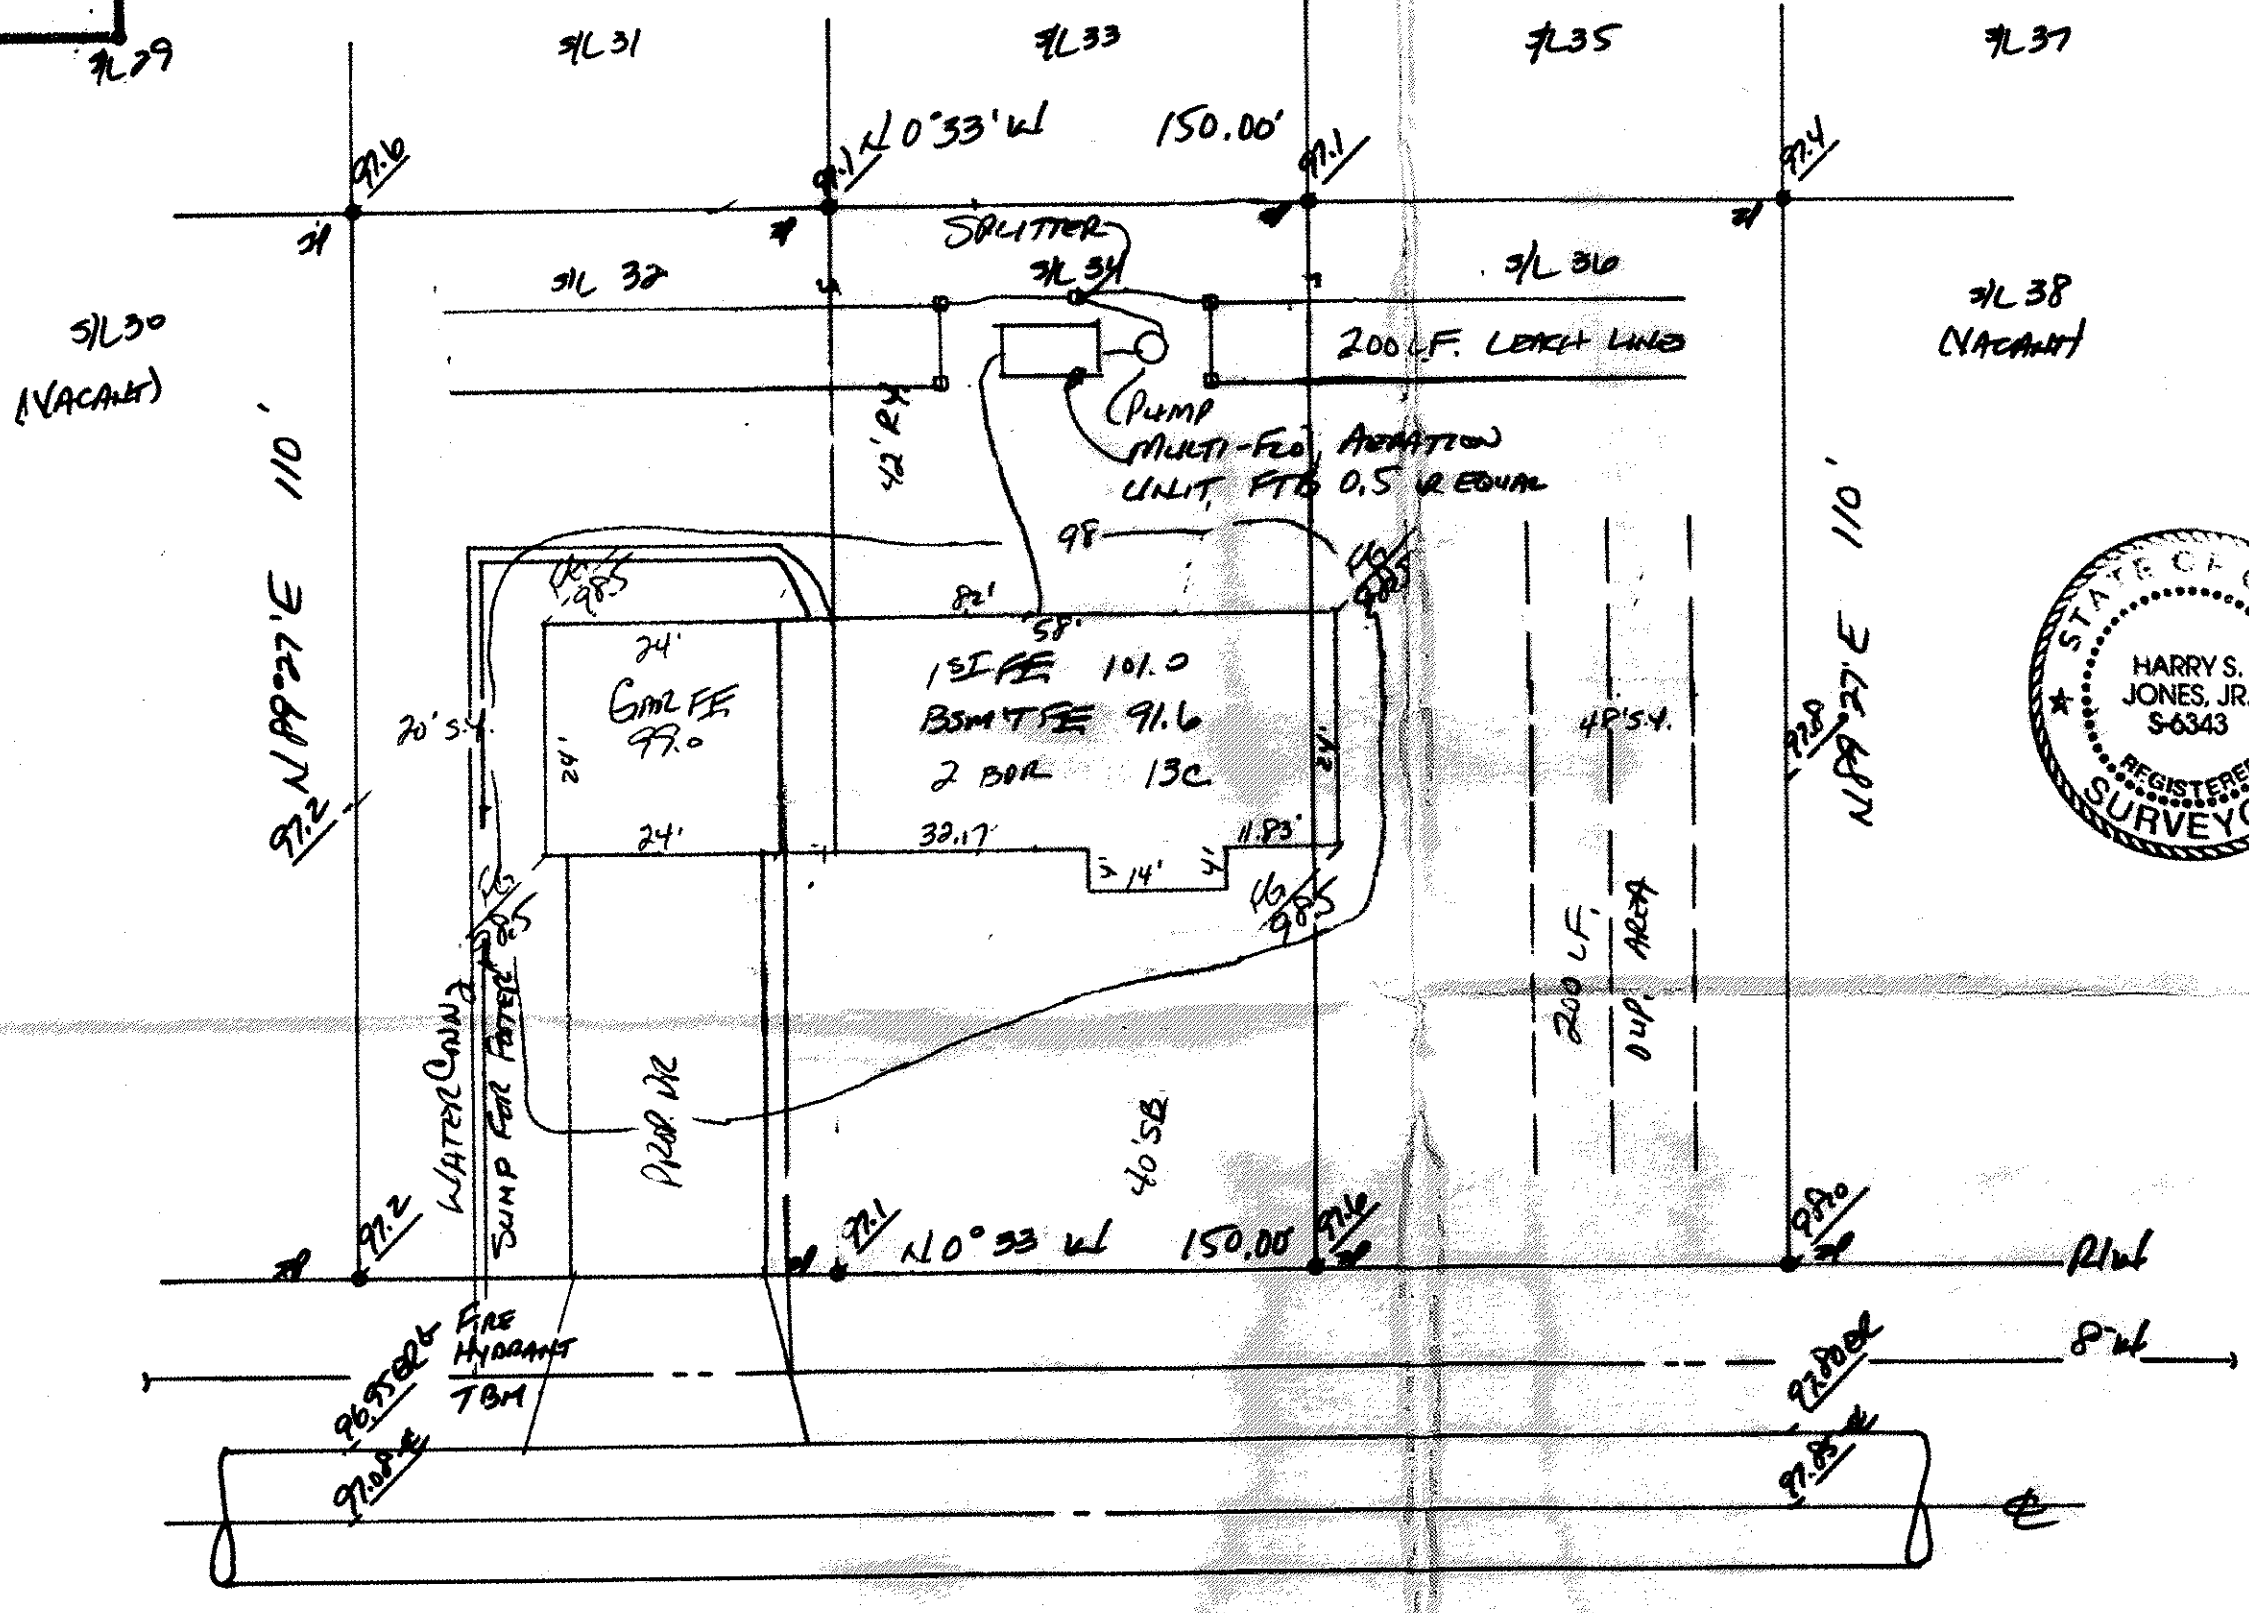 S/L 29
S/L 31
S/L 33
S/L 35
S/L 37
N 0°33' W 150.00'
97.6
97.1
97.1
97.4
SPLITTER
S/L 30
(VACANT)
S/L 32
S/L 34
S/L 36
S/L 38
(VACANT)
200 L.F. LEACH LINES
PUMP
MULTI-FLO AERATION
UNIT, FTB 0.5 OR EQUAL
42' RY
N 89°27' E 110'
N 89°27' E 110'
98
FG
98.5
FG
98.5
82'
58'
24'
GAR FE
99.0
24'
24'
1ST FE 101.0
BSM'T FE 91.6
2 BDR 13C
24'
20' S.Y.
48' S.Y.
97.2
97.8
32.17
11.83'
14'
4'
FG
98.5
FG
98.5
200 L.F.
DUP. AREA
WATER CONN
SUMP FOR FOOTER
PROP. DR
40' SB
97.2
97.1
N 0°33 W 150.00'
97.6
98.0
R/W
FIRE
HYDRANT
TBM
8" W
96.95
97.08
97.80
97.85
STATE OF
HARRY S.
JONES, JR.
S-6343
REGISTERED
SURVEYO